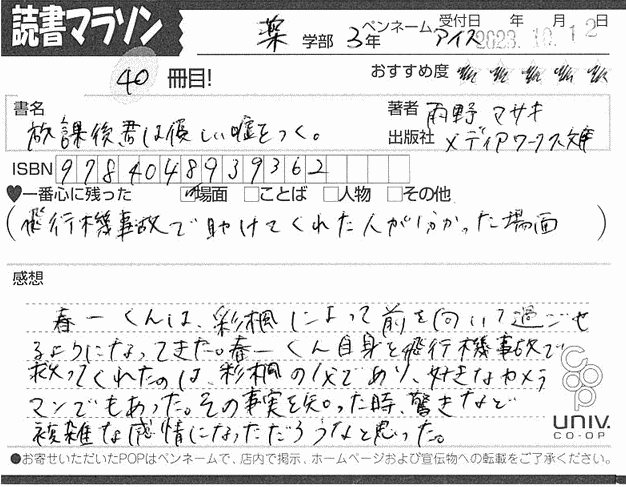 読書マラソン
薬 学部 3年 ペンネーム アイス 受付日 年 月 日
2023.10.12
40 冊目! おすすめ度
書名 放課後君は優しい嘘をつく。
著者 雨野 マサキ
出版社 メディアワークス文庫
ISBN 9784048939362
♥一番心に残った 場面 ことば 人物 その他
(飛行機事故で助けてくれた人が分かった場面)
感想
春一くんは、彩楓によって前を向いて過ごせ
るようになってきた。春一くん自身を飛行機事故で
救ってくれたのは、彩楓の父であり、好きなカメラ
マンでもあった。その事実を知った時、驚きなど
複雑な感情になっただろうなと思った。
coop
UNIV.
CO-OP
●お寄せいただいたPOPはペンネームで、店内で掲示、ホームページおよび宣伝物への転載をご了承ください。